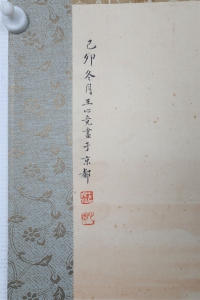 己卯冬月王心竟畫于京都